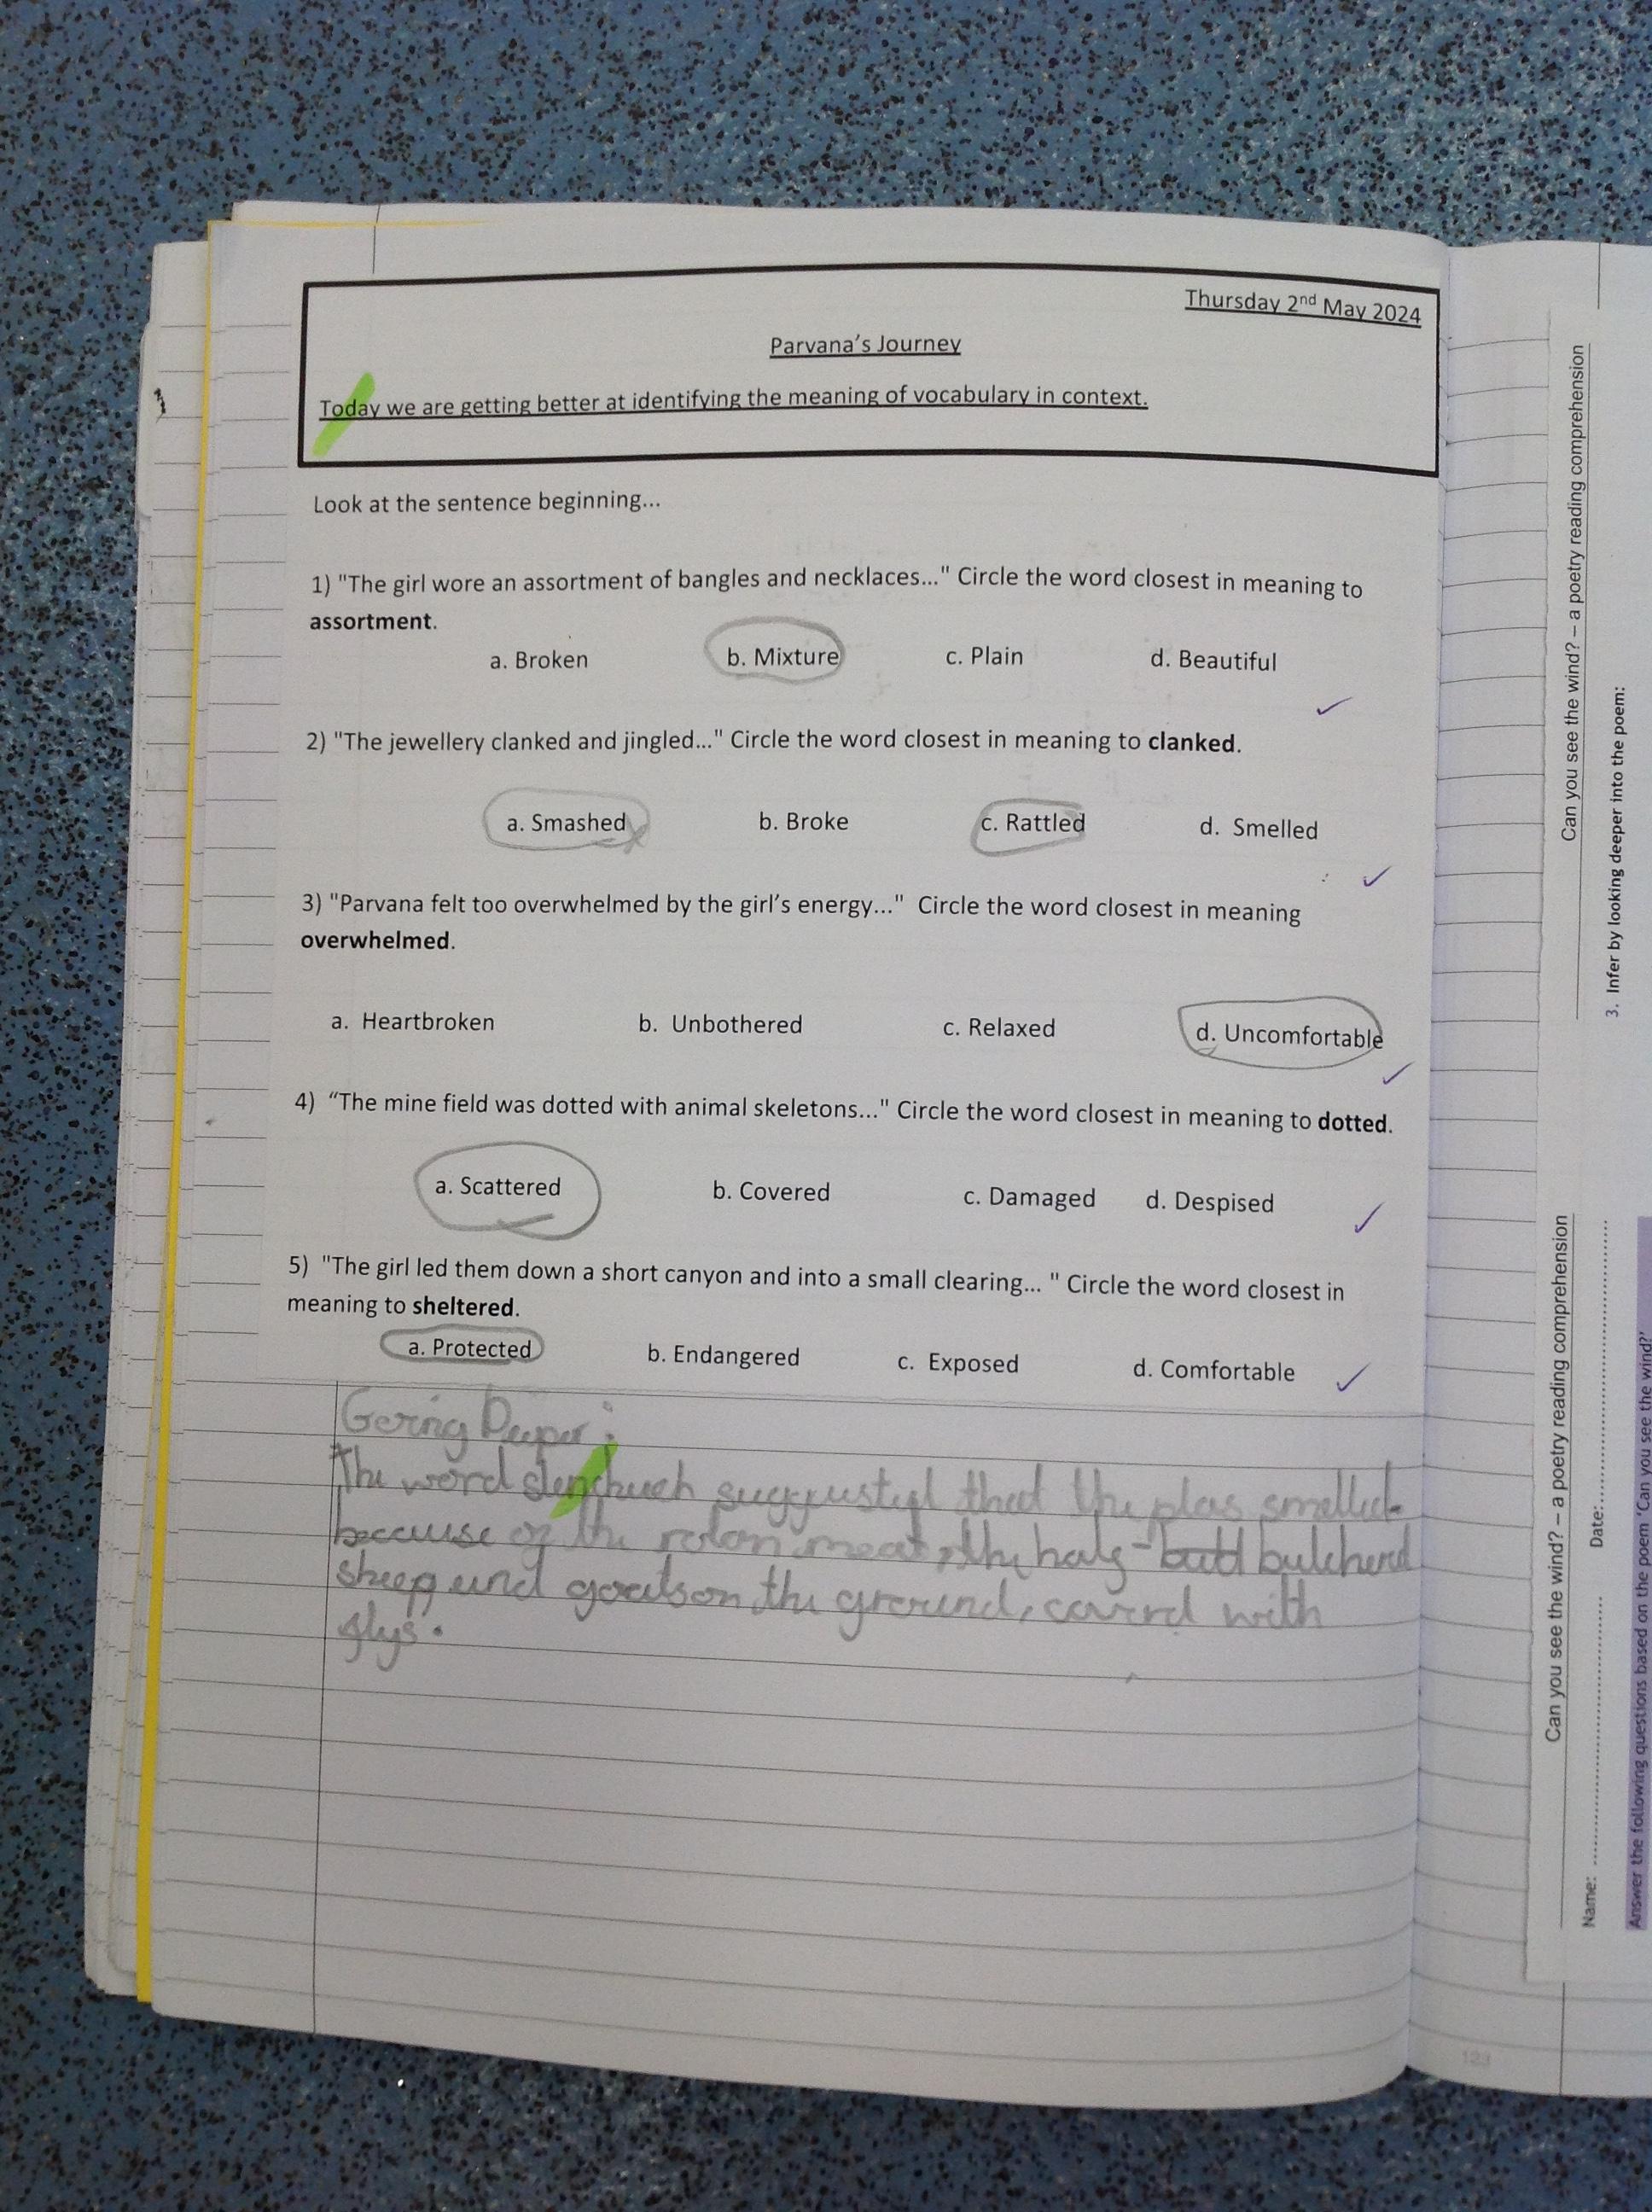 Thursday 2nd May 2024
Parvana's Journey
Today we are getting better at identifying the meaning of vocabulary in context.
Look at the sentence beginning...
1) "The girl wore an assortment of bangles and necklaces..." Circle the word closest in meaning to
assortment.
a. Broken b. Mixture c. Plain d. Beautiful
2) "The jewellery clanked and jingled..." Circle the word closest in meaning to clanked.
a. Smashed b. Broke c. Rattled d. Smelled
3) "Parvana felt too overwhelmed by the girl's energy..." Circle the word closest in meaning
overwhelmed.
a. Heartbroken b. Unbothered c. Relaxed d. Uncomfortable
4) “The mine field was dotted with animal skeletons..." Circle the word closest in meaning to dotted.
a. Scattered b. Covered c. Damaged d. Despised
5) "The girl led them down a short canyon and into a small clearing... " Circle the word closest in
meaning to sheltered.
a. Protected b. Endangered c. Exposed d. Comfortable
The word that the plas smelled
because of the meat, the half- butcherd
sheep and goats on the ground, coverd with
flys.
Can you see the wind? – a poetry reading comprehension
3. Infer by looking deeper into the poem:
Can you see the wind? – a poetry reading comprehension
Name: Date:
Answer the following questions based on the poem 'Can you see the wind?'
123